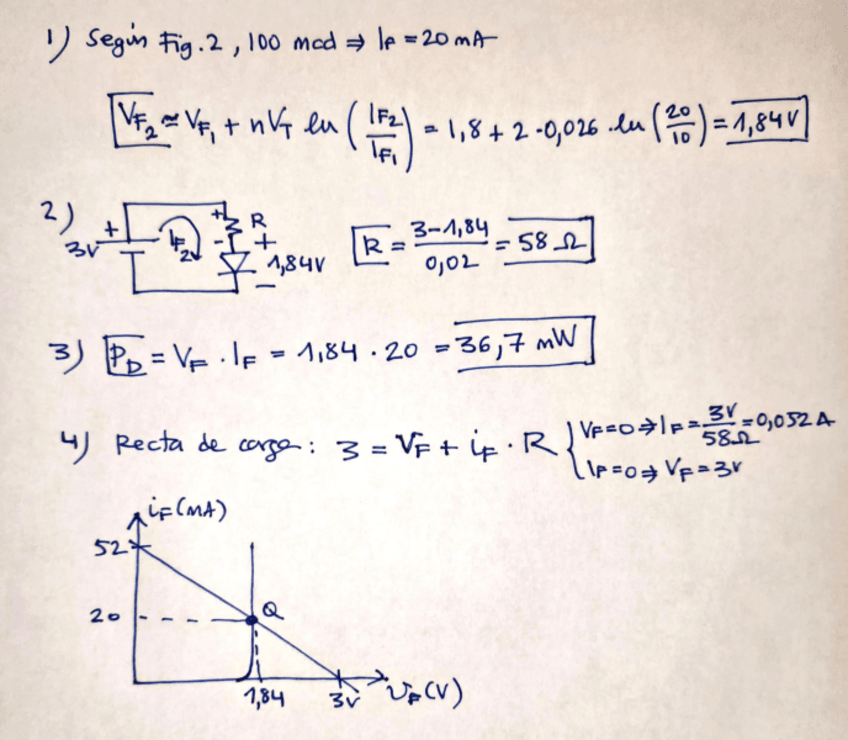 1) Según Fig. 2, 100 mcd ⇒ IF = 20 mA
VF2 ≃ VF1 + nVT ln (IF2/IF1) = 1,8 + 2·0,026·ln (20/10) = 1,84 V
2) 3V + IF2 + R - + 1,84V - R = (3-1,84)/0,02 = 58 Ω
3) PD = VF · IF = 1,84 · 20 = 36,7 mW
4) Recta de carga: 3 = VF + iF · R { VF=0 ⇒ IF = 3V/58Ω = 0,052 A
IF=0 ⇒ VF=3V
iF (mA)
52
20
Q
1,84 3V vF (V)